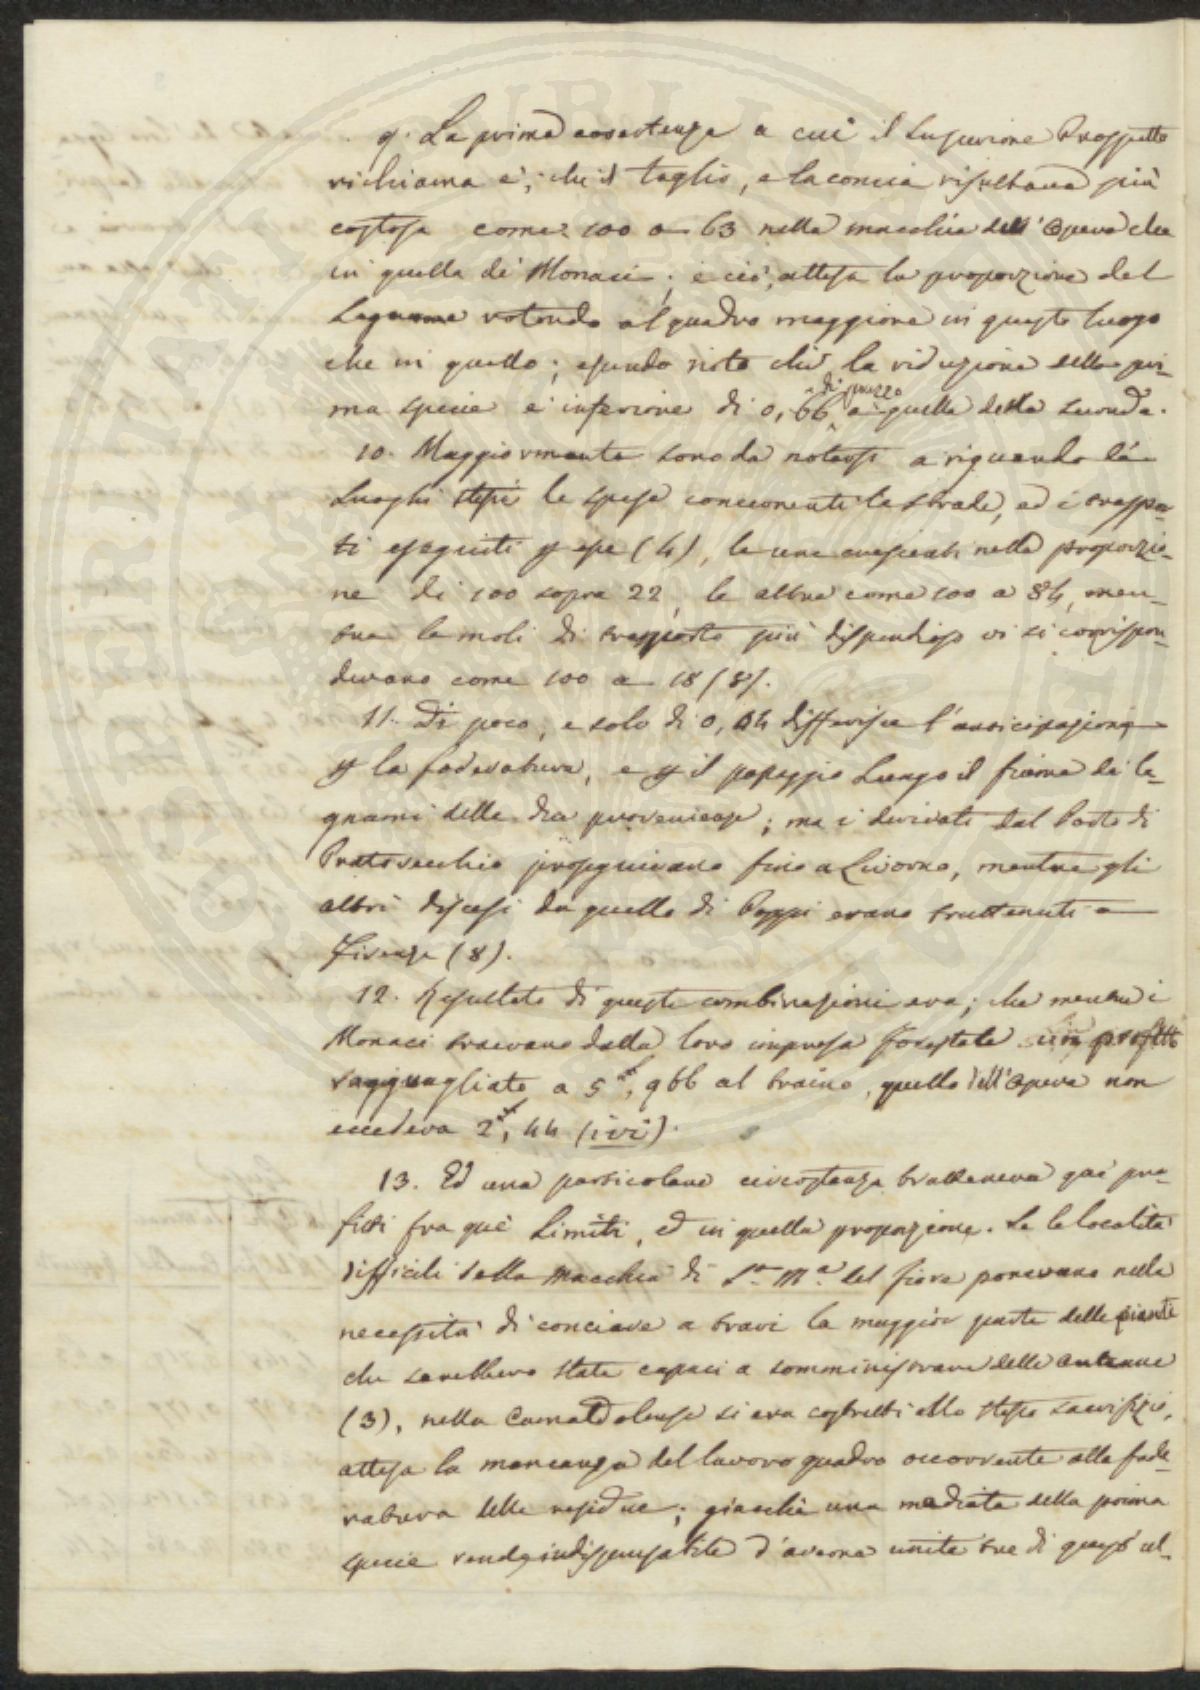 9. La prima avvertenza a cui il Superiore Prospetto
richiama è, che il taglio, e la concia risultava più
costosa come 100 a 63 nella macchia dell'Opera che
in quella de' Monaci; e ciò, attesa la proporzione del
Legname rotondo al quadro maggiore in questo luogo
che in quello; essendo noto che la riduzione della pri-
ma specie è inferiore di 0,66 di prezzo a quella della seconda.
10. Maggiormente sono da notarsi a riguardo de'
Luoghi stessi le spese concernenti le strade, ed i traspor-
ti eseguiti p esse (4), le une cresciute nella proporzio-
ne di 100 sopra 22, le altre come 100 a 84, men-
tre le moli di trasporto più dispendioso vi si corrispon-
devano come 100 a 18 (8).
11. Di poco, e solo di 0,04 differisce l'anticipazione
p la foderatura, e p il passaggio Lungo il fiume de' le-
gnami delle due provenienze; ma i derivati dal Porto di
Pratovecchio proseguivano fino a Livorno, mentre gli
altri discesi da quello di Poppi erano trattenuti a
Firenze (8).
12. Resultato di queste combinazioni era; che mentre i
Monaci traevano dalla loro impresa forestale un profitto
ragguagliato a 5, 966 al traino, quello dell'Opera non
eccedeva 2, 44 (ivi).
13. Ed una particolare circostanza tratteneva que' pro-
fitti fra que' Limiti, ed in quella proporzione. Se le località
difficili della macchia di S.ta M.a del fiore ponevano nella
necessità di conciare a travi la maggior parte delle piante
che sarebbero state capaci a somministrare delle antenne
(3), nella Camaldolense si era costretti allo stesso sacrifizio,
attesa la mancanza del lavoro quadro occorrente alla fode-
ratura delle residue; giacchè una mediata della prima
specie rende indispensabile d'averne unite tre di quest'ul-